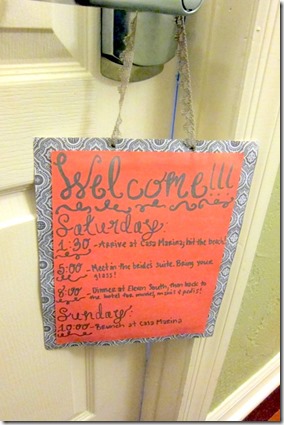 Welcome!!!
Saturday:
1:30 - Arrive at Casa Marina, hit the beach!
5:00 - Meet in the brides suite. Bring your
glass!
8:00 - Dinner at Eleven South, then back to
the hotel for movies, mojitos & pedis!
Sunday:
10:00 - Brunch at Casa Marina